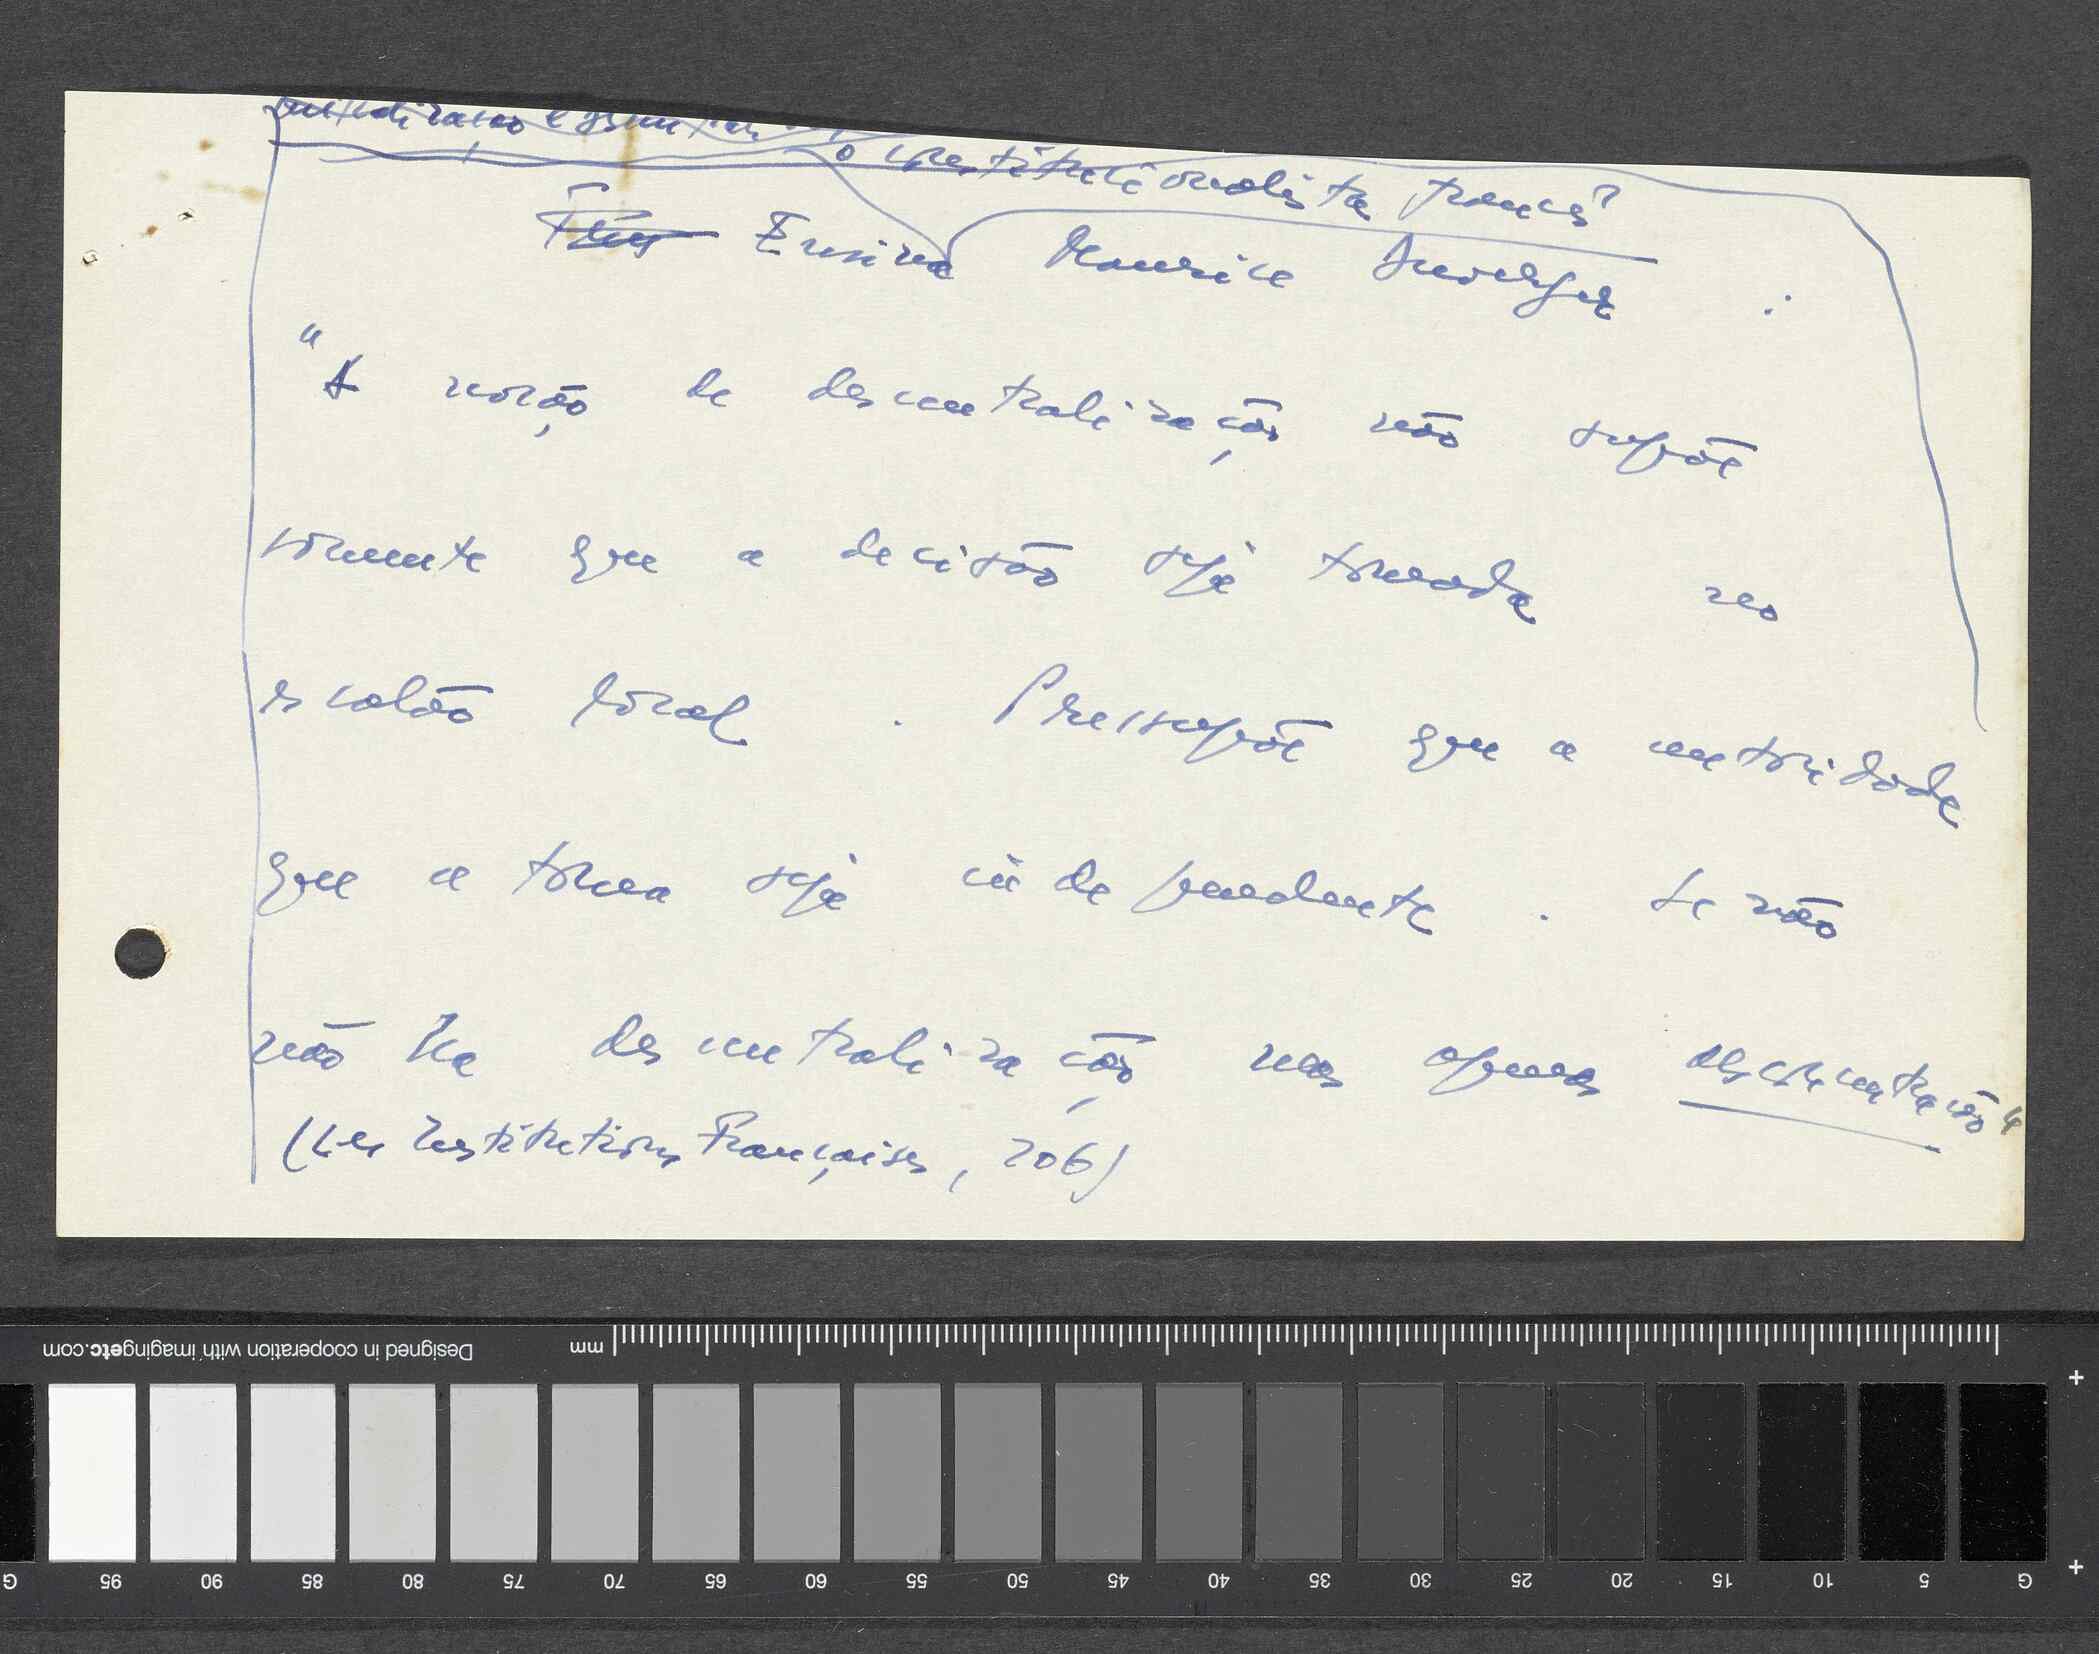 o constitucionalista francês
Ensina Maurice Duverger :
"A noção de descentralização não supõe
sòmente que a decisão seja tomada no
escalão local . Pressupõe que a autoridade
que a toma seja independente . Se não
não há descentralização mas apenas desconcentração"
(Les Institutions Françaises, 206)
Designed in cooperation with imagingetc.com mm
G 95 90 85 80 75 70 65 60 55 50 45 40 35 30 25 20 15 10 5 G